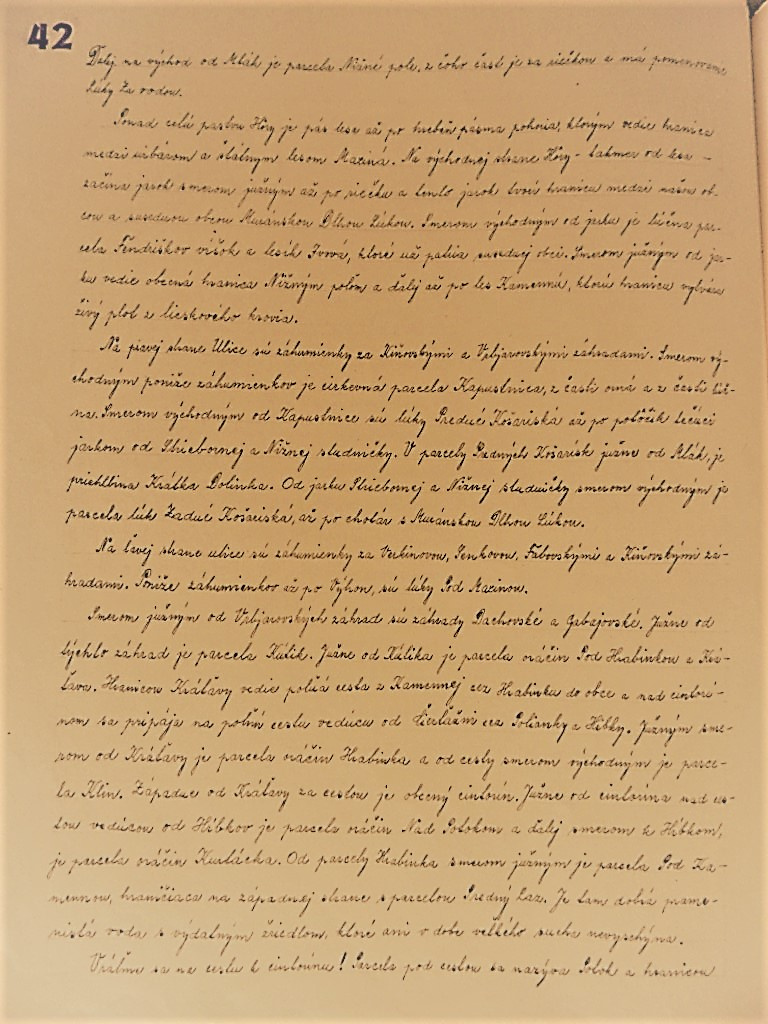 42
Ďalej na východ od Mlák je parcela Nižné pole, z čoho časť je za riečkou a má pomenovanie
Lúky za vodou.
Ponad celú pastvu Hôry je pás lesa až po hrebeň pásma pohoria, ktorým vedie hranica
medzi urbárom a štátnym lesom Maginá. Na východnej strane Hôry - takmer od lesa -
začína jarok smerom južným až po riečku a tento jarok tvorí hranicu medzi našou ob-
cou a susednou obcou Muránskou Dlhou Lúkou. Smerom východným od jarku je lúčna par-
cela Fendrikkov vŕšok a lesík Ivová, ktoré už patria susednej obci. Smerom južným od jar-
ku vedie obecná hranica Nižným poľom a ďalej až po les Kamennú, ktorú hranicu vytvára
živý plot z lieskového krovia.
Na pravej strane Ulice sú záhumienky za Kiňovskými a Vrbjarovskými záhradami. Smerom vý-
chodným poniže záhumienkov je cirkevná parcela Kapustnica, z časti orná a z časti lúč-
na. Smerom východným od Kapustnice sú lúky Predné Košariská až po potôčik tečúci
jarkom od Striebornej a Nižnej studničky. V parcely Predných Košarísk južne od Mlák, je
priehlbina Krátka Dolinka. Od jarku Striebornej a Nižnej studničky smerom východným je
parcela lúk Zadné Košariská, až po chotár s Muránskou Dlhou Lúkou.
Na ľavej strane ulice sú záhumienky za Verkinovou, Jenkovou, Fabovskými a Kiňovskými zá-
hradami. Poniže záhumienkov až po Výhon, sú lúky Pod Maginou.
Smerom južným od Vrbjarovských záhrad sú záhrady Dachovské a Gabajovské. Južne od
týchto záhrad je parcela Kútik. Južne od Kútika je parcela oráčin Pod Hrabinkou a Krá-
ľava. Hranicou Kráľavy vedie poľná cesta z Kamennej cez Hrabinku do obce a nad cintorí-
nom sa pripája na poľnú cestu vedúcu od Čierťažni cez Polianky a Hĺbky. Južným sme-
rom od Kráľavy je parcela oráčin Hrabinka a od cesty smerom východným je parce-
la Klin. Západne od Kráľavy za cestou je obecný cintorín. Južne od cintorína nad ces-
tou vedúcou od Hĺbkov je parcela oráčin Nad Potokom a ďalej smerom k Hĺbkom,
je parcela oráčin Kurlácka. Od parcely Hrabinka smerom južným je parcela Pod Ka-
mennou, hraničiaca na západnej strane s parcelou Predný Laz. Je tam dobrá prame-
nistá voda s výdatným žriedlom, ktoré ani v dobe veľkého sucha nevyschýna.
Vráťme sa na cestu k cintorínu! Parcela pod cestou sa nazýva Potok a hranicou